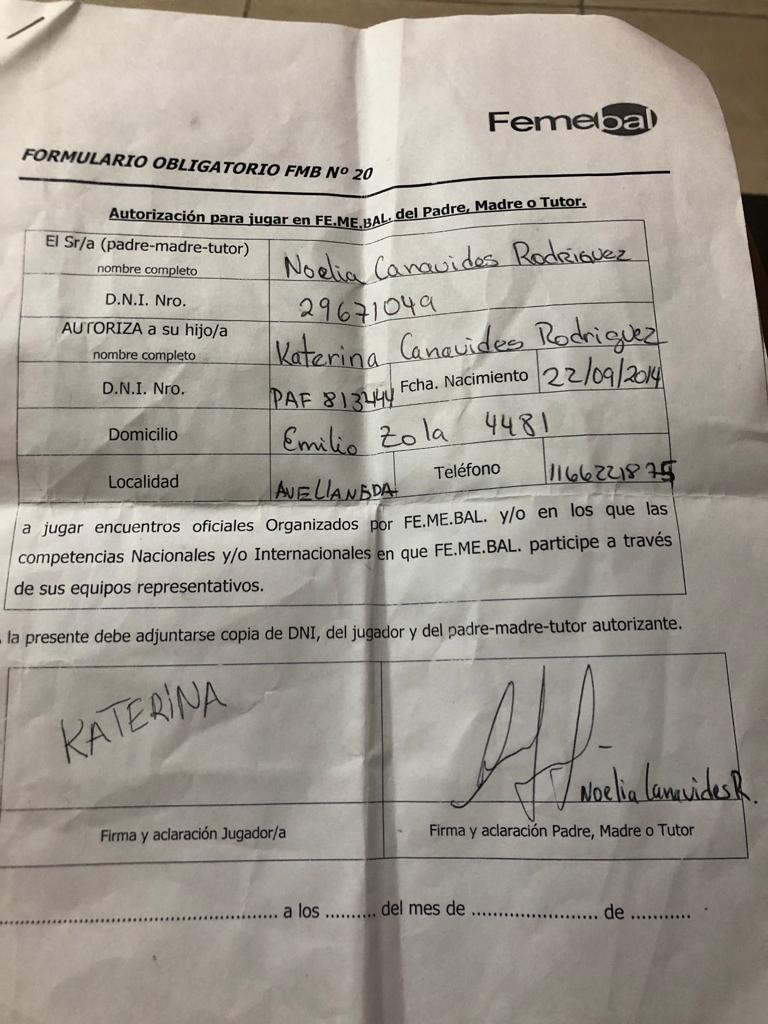 Femebal
FORMULARIO OBLIGATORIO FMB Nº 20
Autorización para jugar en FE.ME.BAL. del Padre, Madre o Tutor.
El Sr/a (padre-madre-tutor)
nombre completo
Noelia Canavides Rodriguez
D.N.I. Nro.
29671049
AUTORIZA a su hijo/a
nombre completo
Katerina Canavides Rodriguez
D.N.I. Nro.
PAF 813444
Fcha. Nacimiento
22/09/2014
Domicilio
Emilio Zola 4481
Localidad
AVELLANEDA
Teléfono
1166221875
a jugar encuentros oficiales Organizados por FE.ME.BAL. y/o en los que las
competencias Nacionales y/o Internacionales en que FE.ME.BAL. participe a través
de sus equipos representativos.
la presente debe adjuntarse copia de DNI, del jugador y del padre-madre-tutor autorizante.
KATERINA
Noelia Canavides R.
Firma y aclaración Jugador/a
Firma y aclaración Padre, Madre o Tutor
.......................................... a los .......... del mes de ........................ de ...........